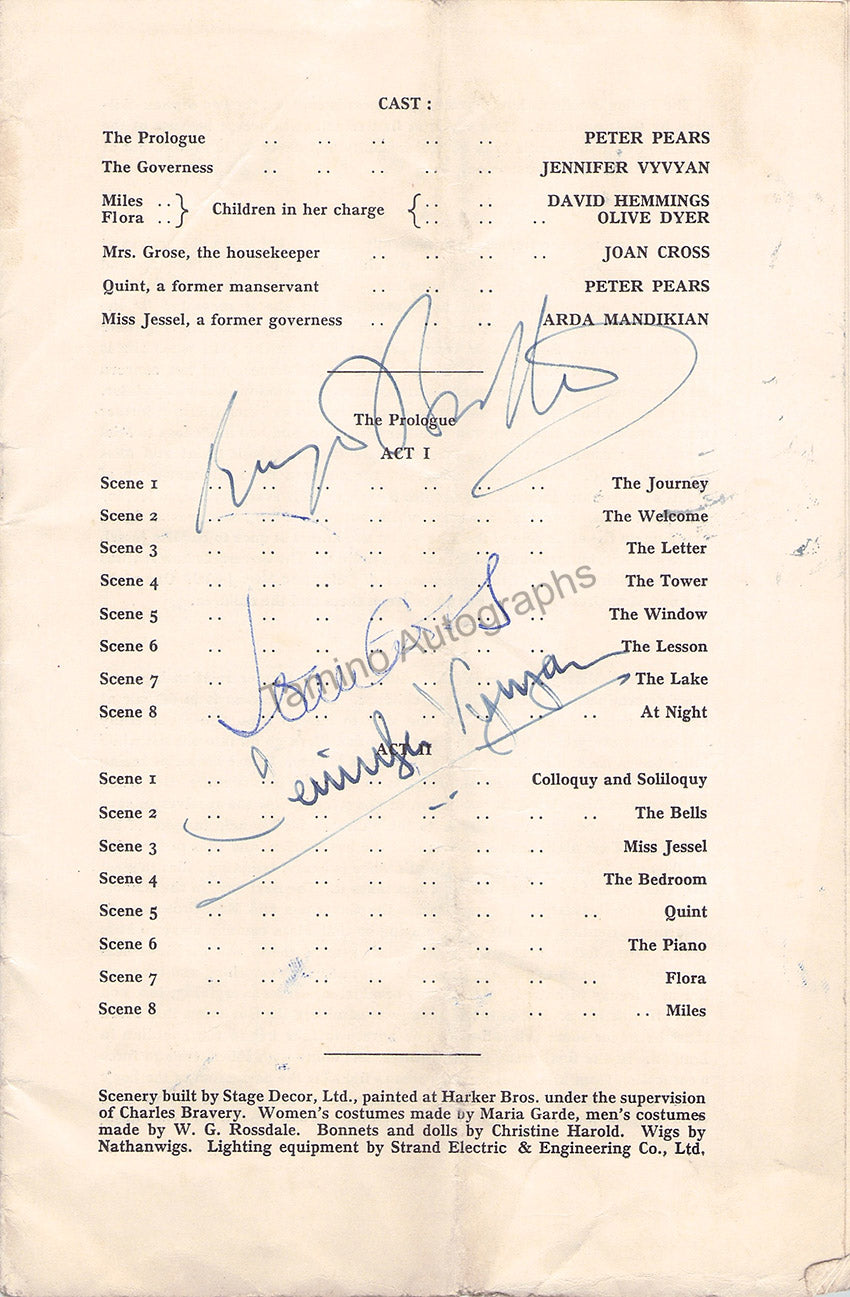 CAST :
The Prologue .. .. .. .. .. PETER PEARS
The Governess .. .. .. .. .. JENNIFER VYVYAN
Miles .. } Children in her charge { .. .. DAVID HEMMINGS
Flora .. } { .. .. .. OLIVE DYER
Mrs. Grose, the housekeeper .. .. .. .. JOAN CROSS
Quint, a former manservant .. .. .. PETER PEARS
Miss Jessel, a former governess .. .. .. ARDA MANDIKIAN
Benjamin Britten
The Prologue
ACT I
Scene 1 .. .. .. .. .. .. .. The Journey
Scene 2 .. .. .. .. .. .. .. The Welcome
Scene 3 .. .. .. .. .. .. .. The Letter
Scene 4 .. .. .. .. .. .. .. The Tower
Scene 5 .. .. .. .. .. .. .. The Window
Scene 6 .. .. .. .. .. .. .. The Lesson
Scene 7 .. .. .. .. .. .. .. The Lake
Scene 8 .. .. .. .. .. .. .. .. At Night
Joan Cross
Tamino Autographs
Jennifer Vyvyan
ACT II
Scene 1 .. .. .. .. .. .. Colloquy and Soliloquy
Scene 2 .. .. .. .. .. .. .. .. The Bells
Scene 3 .. .. .. .. .. .. .. Miss Jessel
Scene 4 .. .. .. .. .. .. .. The Bedroom
Scene 5 .. .. .. .. .. .. .. .. Quint
Scene 6 .. .. .. .. .. .. .. The Piano
Scene 7 .. .. .. .. .. .. .. .. Flora
Scene 8 .. .. .. .. .. .. .. .. .. Miles
Scenery built by Stage Decor, Ltd., painted at Harker Bros. under the supervision
of Charles Bravery. Women's costumes made by Maria Garde, men's costumes
made by W. G. Rossdale. Bonnets and dolls by Christine Harold. Wigs by
Nathanwigs. Lighting equipment by Strand Electric & Engineering Co., Ltd.